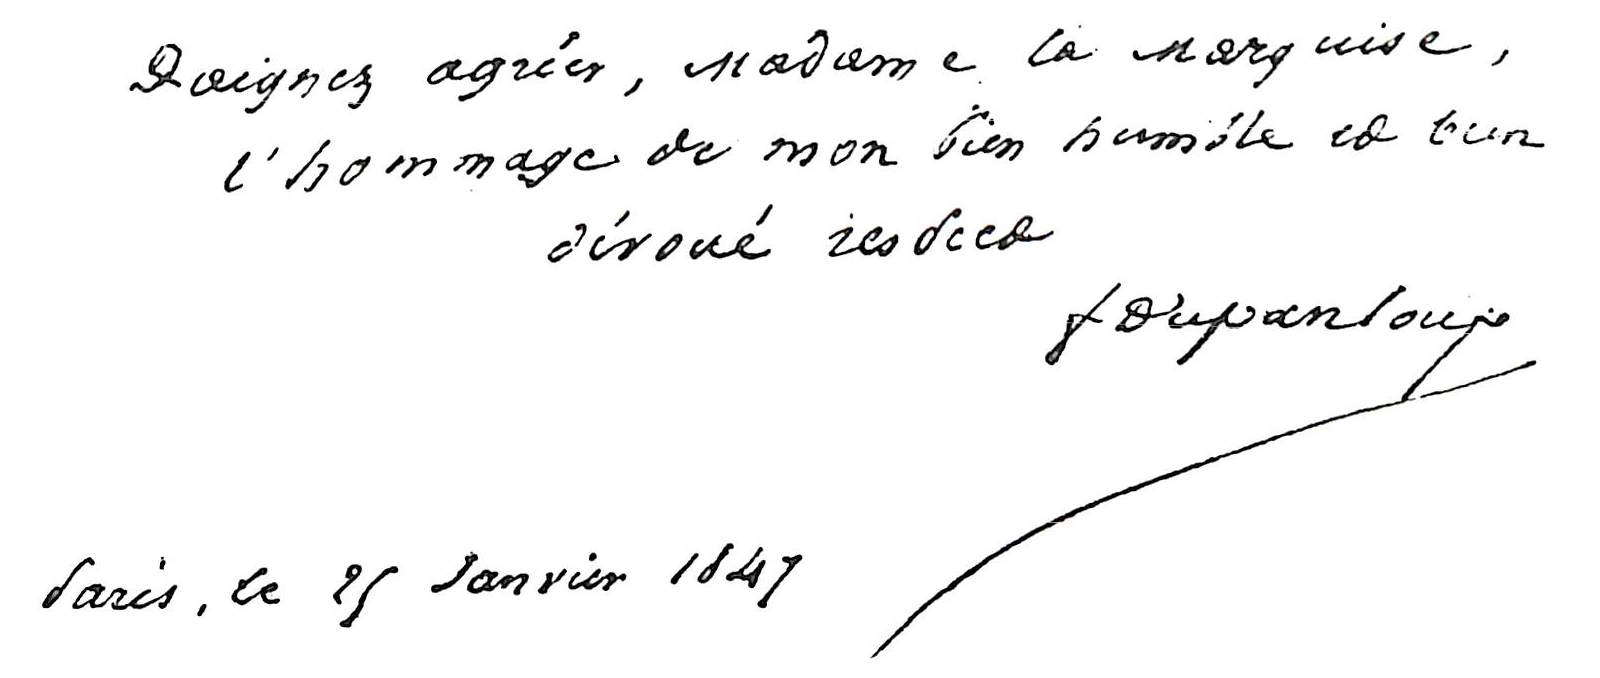 Daignez agréer, Madame la Marquise,
l'hommage de mon bien humble et bien
dévoué respect
f Dupanloup
Paris, le 25 Janvier 1847